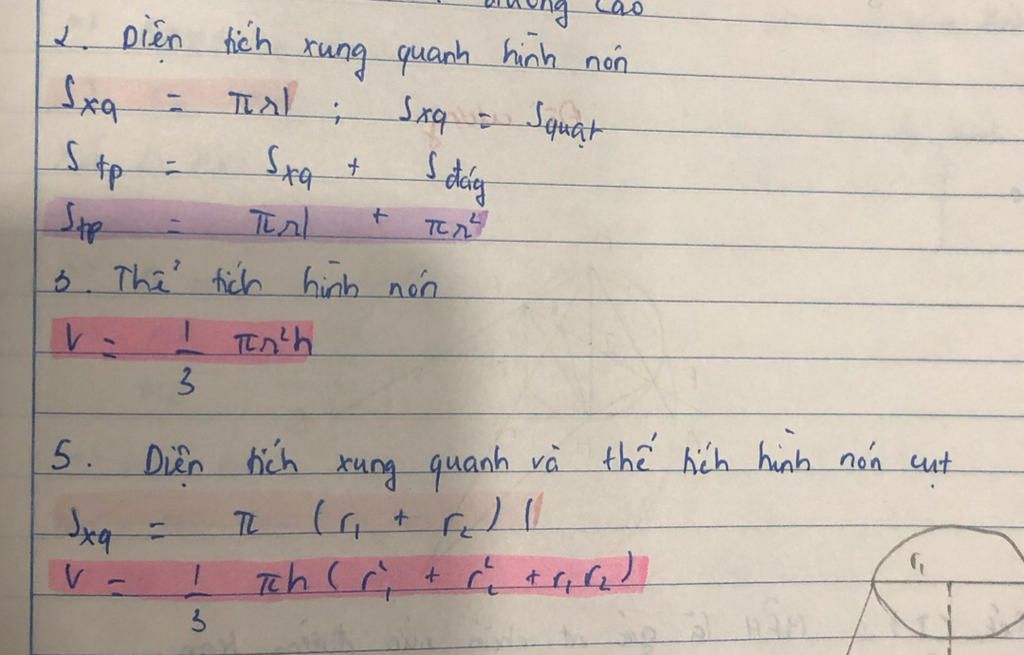 đường cao
2. Diện tích xung quanh hình nón
Sxq = πrl ; Sxq = Squạt
Stp = Sxq + Sđáy
Stp = πrl + πr²
3. Thể tích hình nón
V = 1/3 πr²h
5. Diện tích xung quanh và thể tích hình nón cụt
Sxq = π (r₁ + r₂) l
V = 1/3 πh (r₁² + r₂² + r₁r₂)
r₁